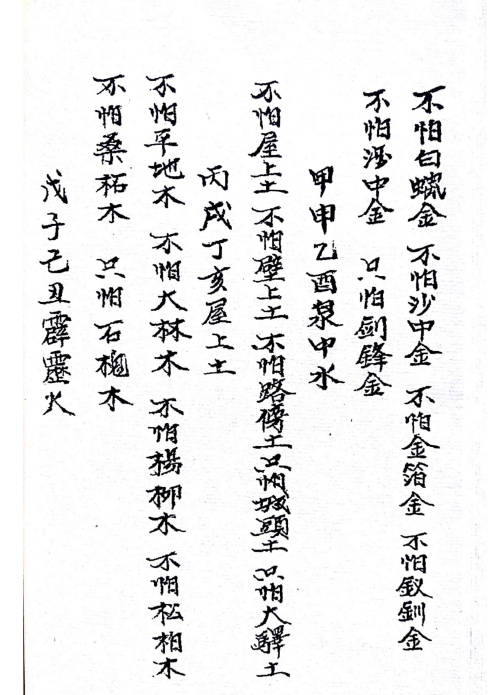 不怕白蠟金 不怕沙中金 不怕金箔金 不怕釵釧金
不怕海中金 只怕劍鋒金
甲申乙酉泉中水
不怕屋上土 不怕壁上土 不怕路傍土 只怕城頭土 只怕大驛土
丙戌丁亥屋上土
不怕平地木 不怕大林木 不怕楊柳木 不怕松柏木
不怕桑柘木 只怕石榴木
戊子己丑霹靂火